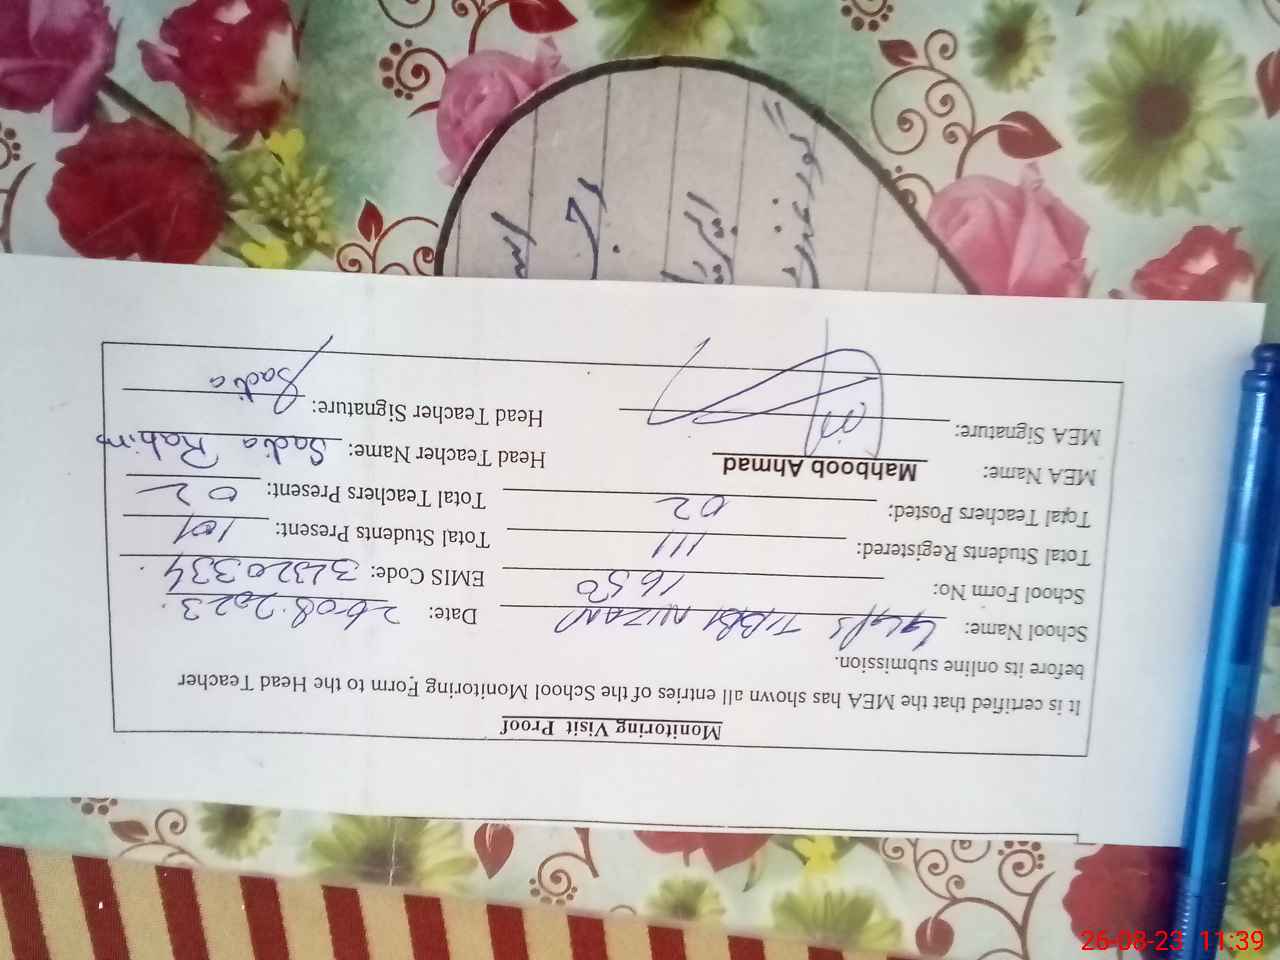 Monitoring Visit Proof
It is certified that the MEA has shown all entries of the School Monitoring Form to the Head Teacher
before its online submission.
School Name: GGPS TIBBI NIZAM Date: 26.08.2023
School Form No: 1650 EMIS Code: 32320334
Total Students Registered: 111 Total Students Present: 101
Total Teachers Posted: 02 Total Teachers Present: 02
MEA Name: Mahboob Ahmad Head Teacher Name: Sadia Rahim
MEA Signature: Head Teacher Signature: Sadia
26-08-23 11:39